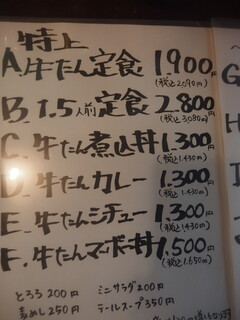 特上
A. 牛たん定食 1,900円
(税込2,090円)
B. 1.5人前定食 2,800円
(税込3,080円)
C. 牛たん煮込丼 1,300円
(税込1,430円)
D. 牛たんカレー 1,300円
(税込1,430円)
E. 牛たんシチュー 1,300円
(税込1,430円)
F. 牛たんマーボー丼 1,500円
(税込1,650円)
とろろ200円 ミニサラダ200円
麦めし250円 テールスープ350円
G
H